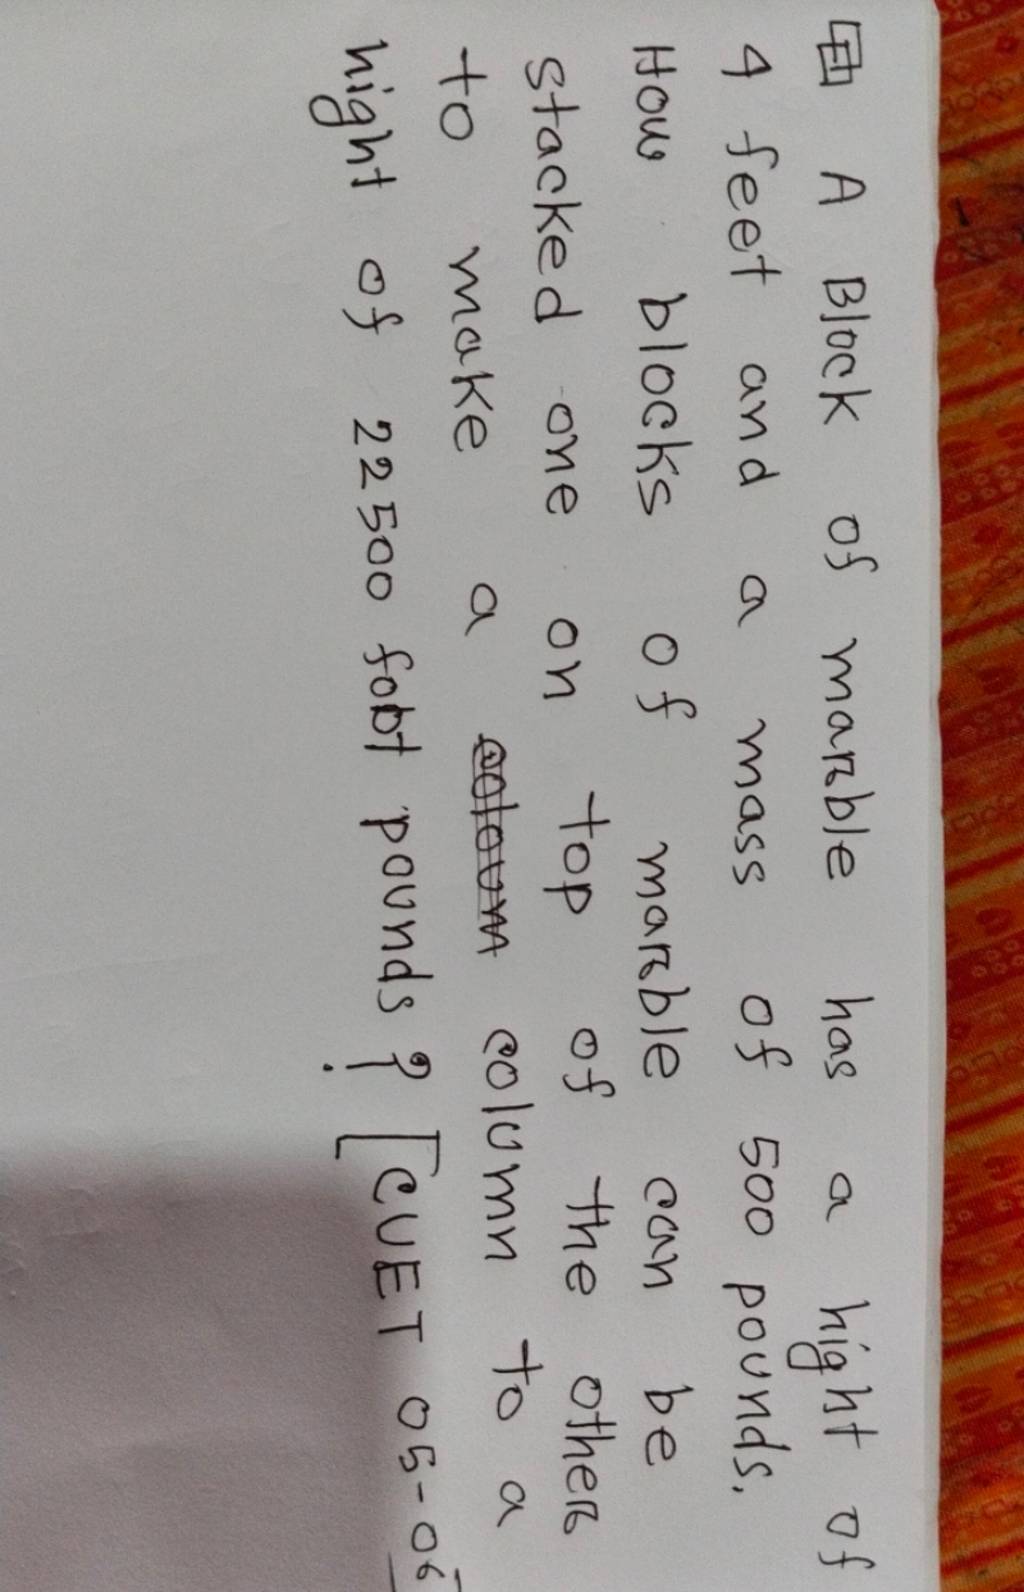 A Block of marable has a hight of
4 feet and a mass of 500 pounds.
How blocks of marable can be
stacked one on top of the other
to make a column to a
hight of 22500 foot pounds? [CUET 05-06